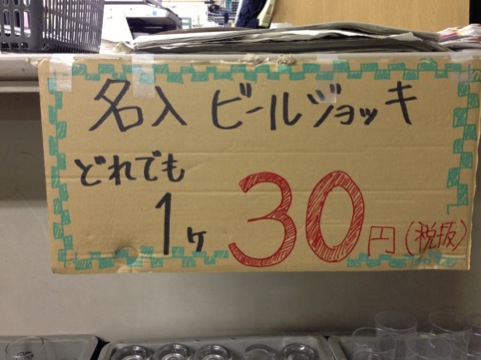 名入 ビールジョッキ
どれでも
1ヶ 30円(税抜)